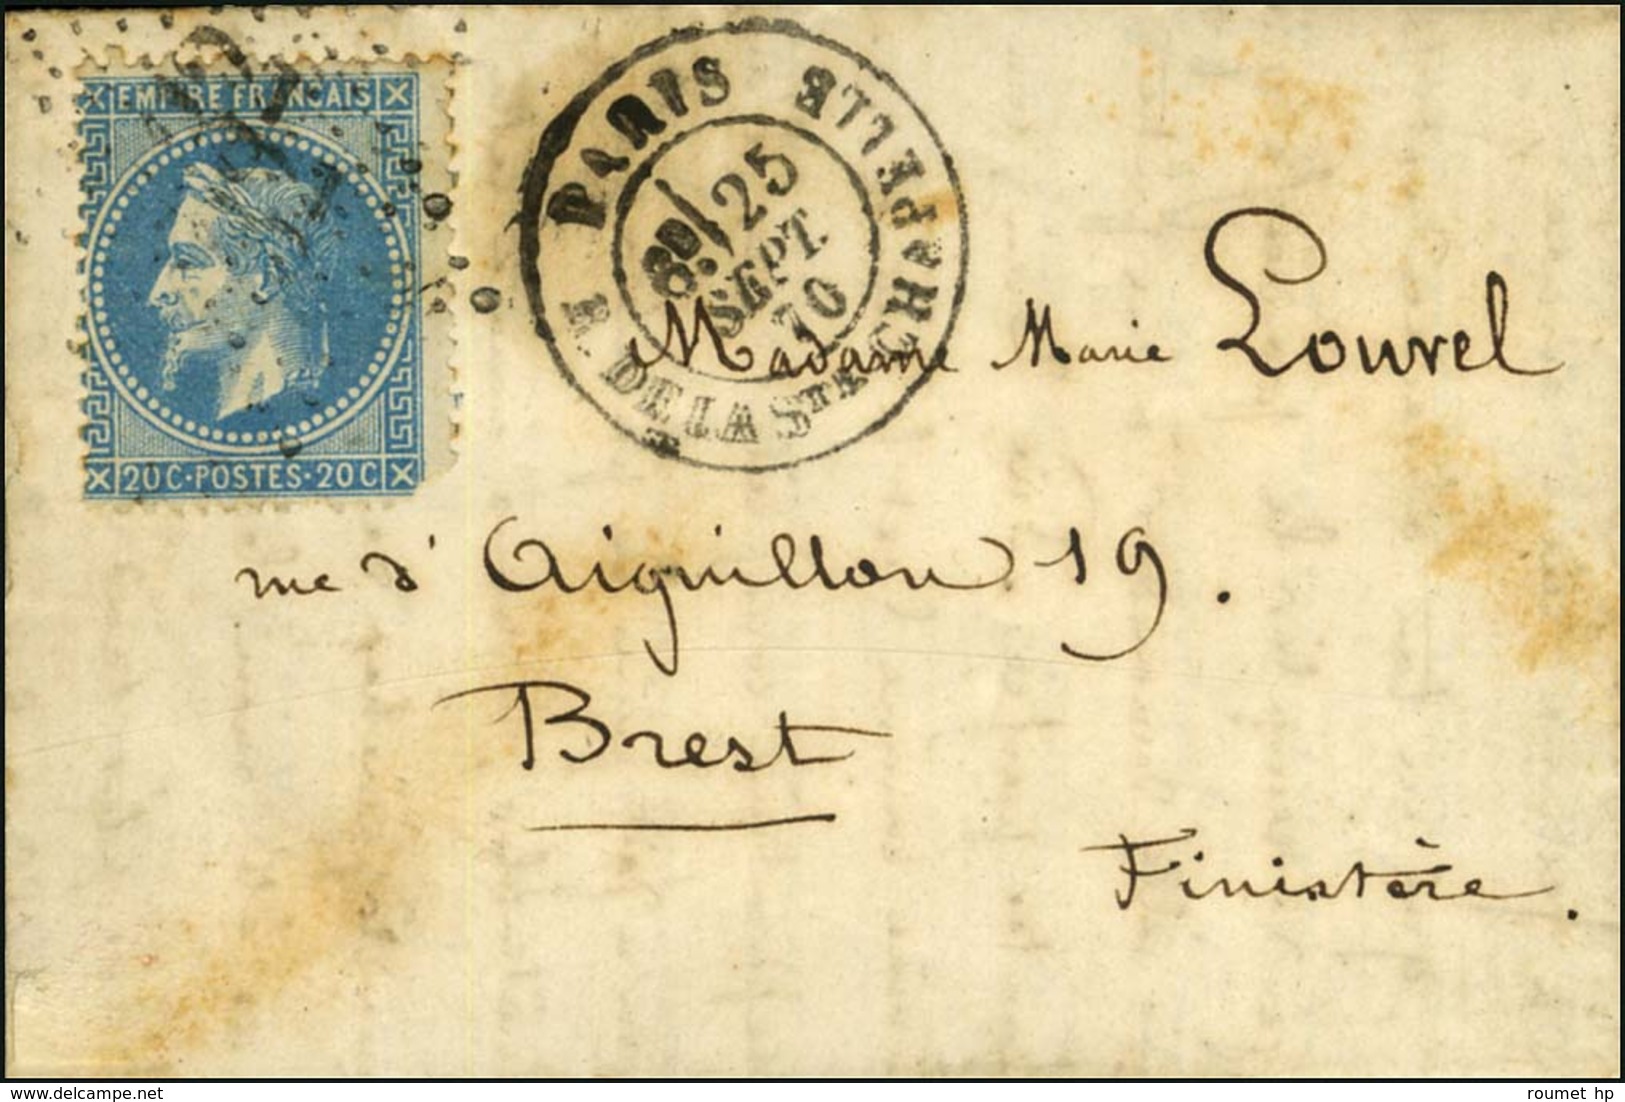 EMPIRE FRANCAIS
20C·POSTES·20C
PARIS
R. DE LA STE CHAPELLE
25
SEPT.
70
Madame Marie Louvel
rue d'Aiguillon 19.
Brest
Finistère.
roumet hp